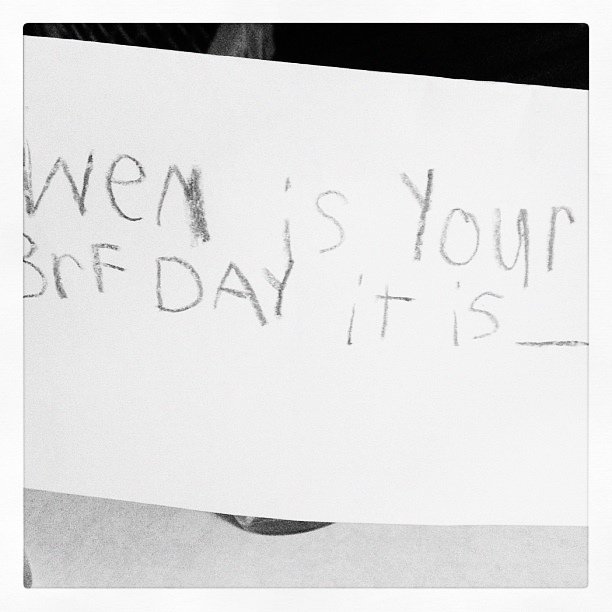 wen is Your
BrF DAY it is __